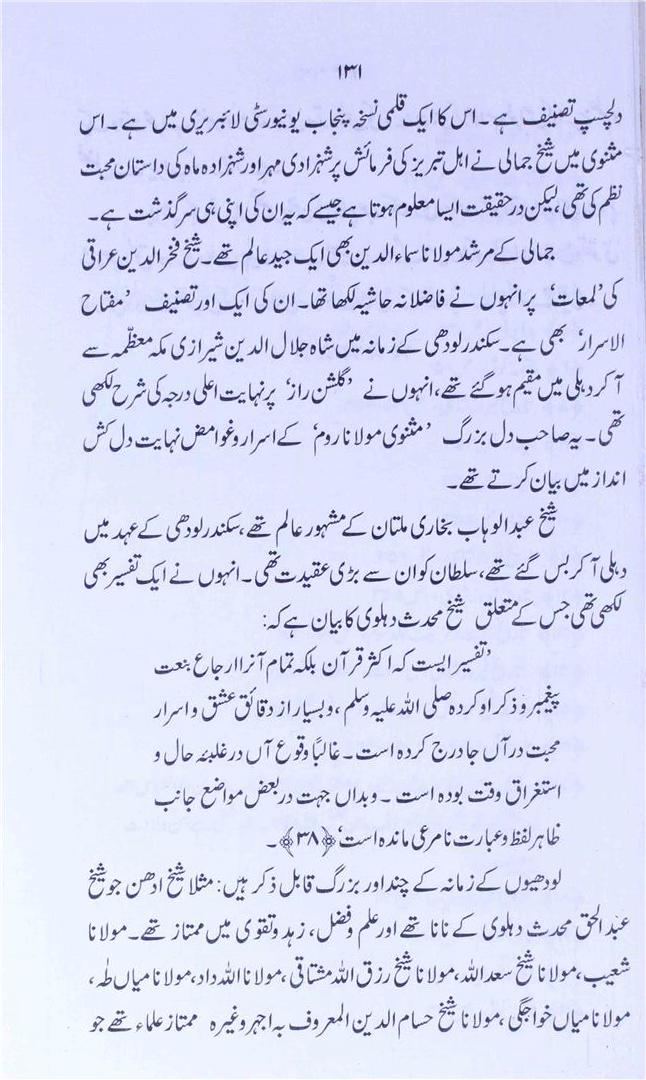 ۱۳۱
دلچسپ تصنیف ہے۔ اس کا ایک قلمی نسخہ پنجاب یونیورسٹی لائبریری میں ہے۔ اس
مثنوی میں شیخ جمالی نے اہل تبریز کی فرمائش پر شہزادی مہر اور شہزادہ ماہ کی داستان محبت
نظم کی تھی، لیکن در حقیقت ایسا معلوم ہوتا ہے جیسے کہ یہ ان کی اپنی ہی سرگذشت ہے۔
جمالی کے مرشد مولانا سماء الدین بھی ایک جید عالم تھے۔ شیخ فخر الدین عراقی
کی ’لمعات‘ پر انہوں نے فاضلانہ حاشیہ لکھا تھا۔ ان کی ایک اور تصنیف ’مفتاح
الاسرار‘ بھی ہے۔ سکندر لودھی کے زمانہ میں شاہ جلال الدین شیرازی مکہ معظّمہ سے
آ کر دہلی میں مقیم ہو گئے تھے، انہوں نے ’گلشن راز‘ پر نہایت اعلی درجہ کی شرح لکھی
تھی۔ یہ صاحب دل بزرگ ’مثنوی مولانا روم‘ کے اسرار و غوامض نہایت دل کش
انداز میں بیان کرتے تھے۔
شیخ عبد الوہاب بخاری ملتان کے مشہور عالم تھے، سکندر لودھی کے عہد میں
دہلی آ کر بس گئے تھے، سلطان کو ان سے بڑی عقیدت تھی۔ انہوں نے ایک تفسیر بھی
لکھی تھی جس کے متعلق شیخ محدث دہلوی کا بیان ہے کہ:
’تفسیر ایست کہ اکثر قرآن بلکہ تمام آنرا ارجاع بنعت
پیغمبر و ذکر او کردہ صلی اللہ علیہ وسلم، و بسیار از دقائق عشق و اسرار
محبت در آں جا درج کردہ است۔ غالبًا وقوع آں در غلبئہ حال و
استغراق وقت بودہ است۔ و بداں جہت در بعض مواضع جانب
ظاہر لفظ و عبارت نامرعی ماندہ است‘ ﴿۳۸﴾۔
لودھیوں کے زمانہ کے چند اور بزرگ قابل ذکر ہیں: مثلا شیخ ادھن جو شیخ
عبد الحق محدث دہلوی کے نانا تھے اور علم و فضل، زہد و تقوی میں ممتاز تھے۔ مولانا
شعیب، مولانا شیخ سعد اللہ، مولانا شیخ رزق اللہ مشتاقی، مولانا اللہ داد، مولانا میاں طہٰ،
مولانا میاں خواجگی، مولانا شیخ حسام الدین المعروف بہ اجہر وغیرہ ممتاز علماء تھے جو